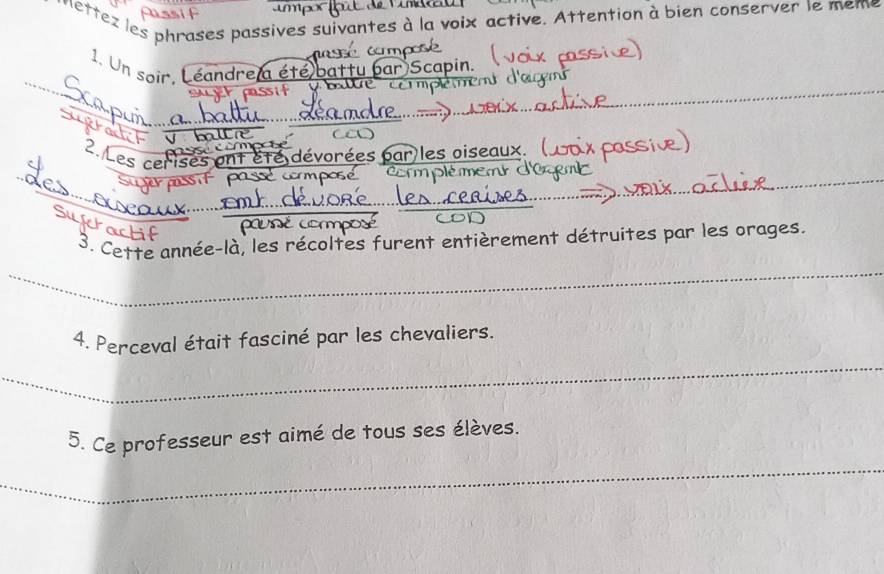 passif imparfait de l'indicatif
Mettez les phrases passives suivantes à la voix active. Attention à bien conserver le même
passé composé (voix passive)
1. Un soir, Léandre a été battu par Scapin.
sujet passif v. battre complément d'agent
Scapin a battu Léandre => voix active
sujet actif v. battre COD
passé composé
2. Les cerises ont été dévorées par les oiseaux. (voix passive)
sujet passif passé composé complément d'agent
des oiseaux ont dévoré les cerises => voix active
Sujet actif passé composé COD
3. Cette année-là, les récoltes furent entièrement détruites par les orages.
4. Perceval était fasciné par les chevaliers.
5. Ce professeur est aimé de tous ses élèves.